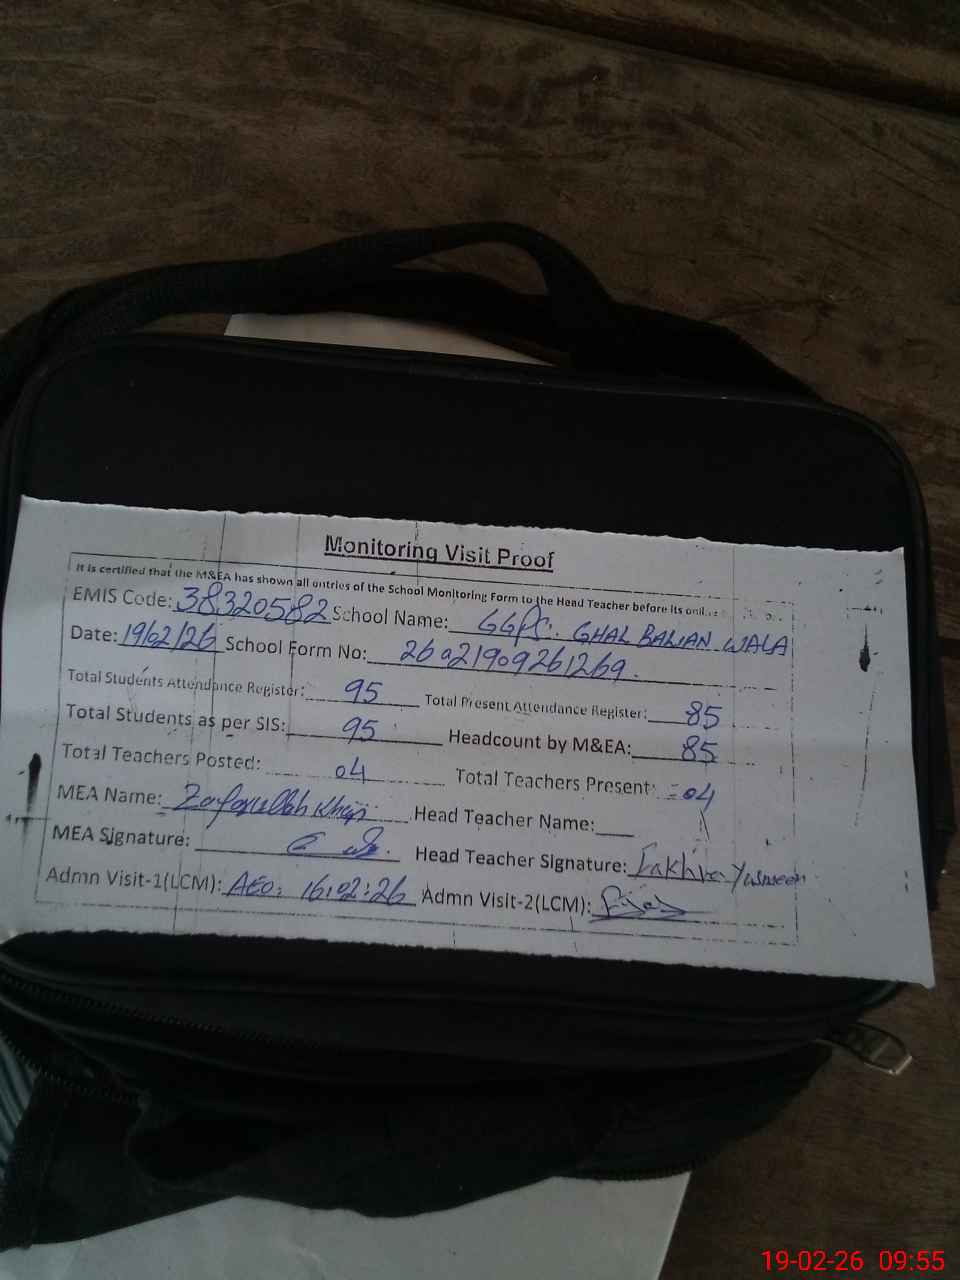 Monitoring Visit Proof
It is certified that the M&EA has shown all entries of the School Monitoring Form to the Head Teacher before its
EMIS Code: 38320582 School Name: GGPS. GHAL BALIAN WALA
Date: 19/02/26 School Form No: 26021909261269.
Total Students Attendance Register: 95 Total Present Attendance Register: 85
Total Students as per SIS: 95 Headcount by M&EA: 85
Total Teachers Posted: 04 Total Teachers Present: =04
MEA Name: Zafarullah Khan Head Teacher Name:
MEA Signature: Head Teacher Signature: Fakhira Yasmeen
Admn Visit-1(LCM): AEO: 16:02:26 Admn Visit-2(LCM):
19-02-26 09:55